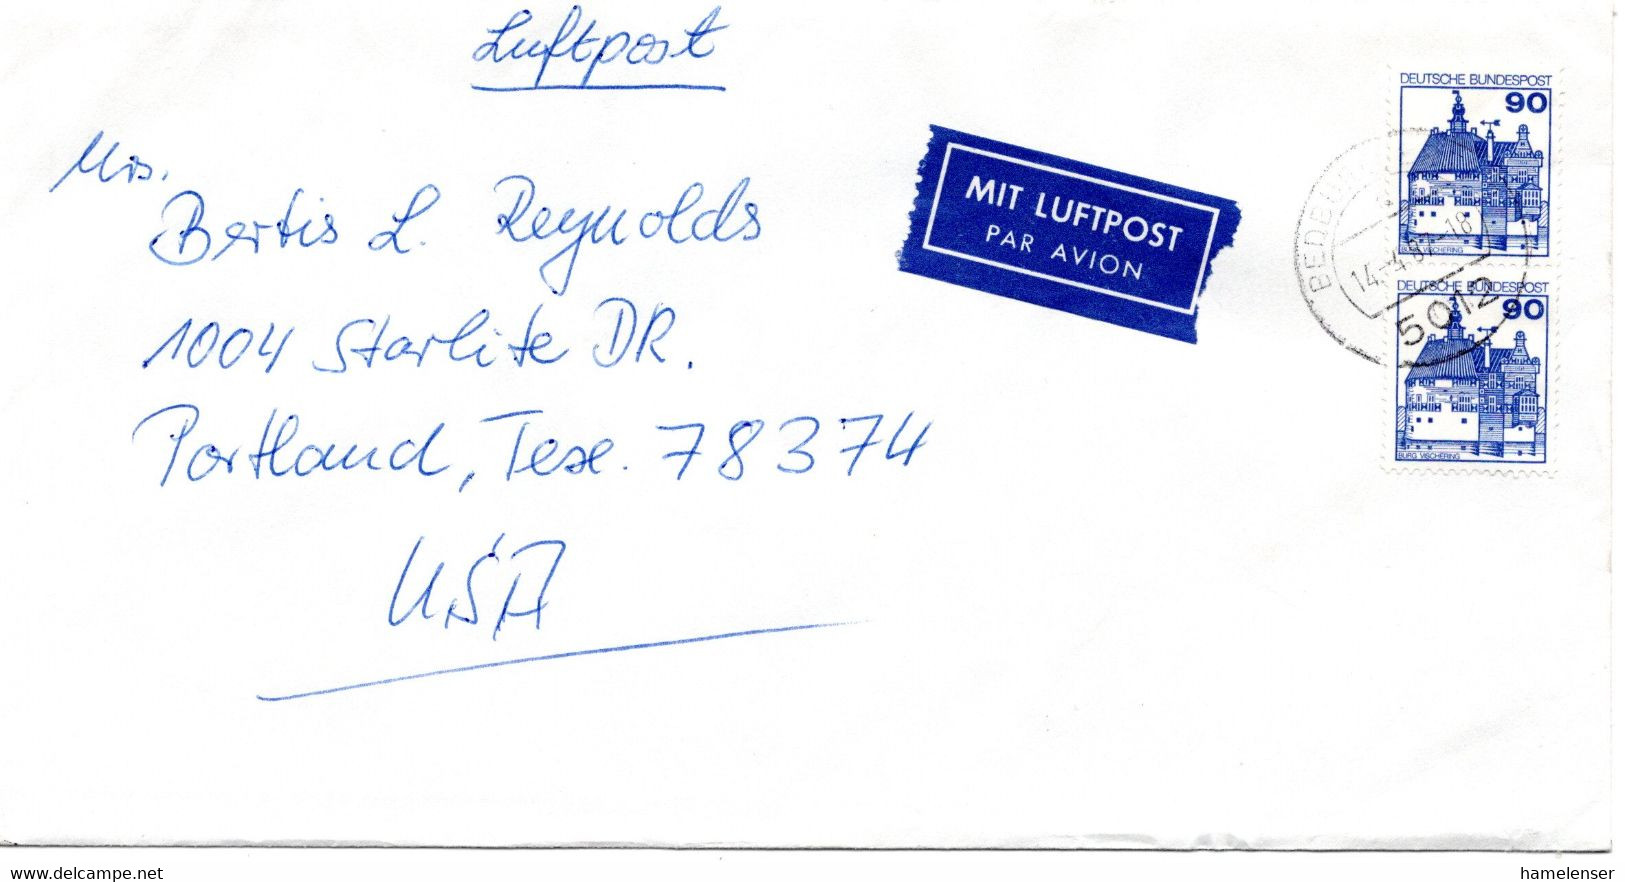 Luftpost
Mrs.
Bertis L. Reynolds
1004 Starlite DR.
Portland, Tex. 78374
USA
MIT LUFTPOST
PAR AVION
DEUTSCHE BUNDESPOST
90
BURG VISCHERING
DEUTSCHE BUNDESPOST
90
BURG VISCHERING
14.-4.87-18
5012
www.delcampe.net
hamelenser